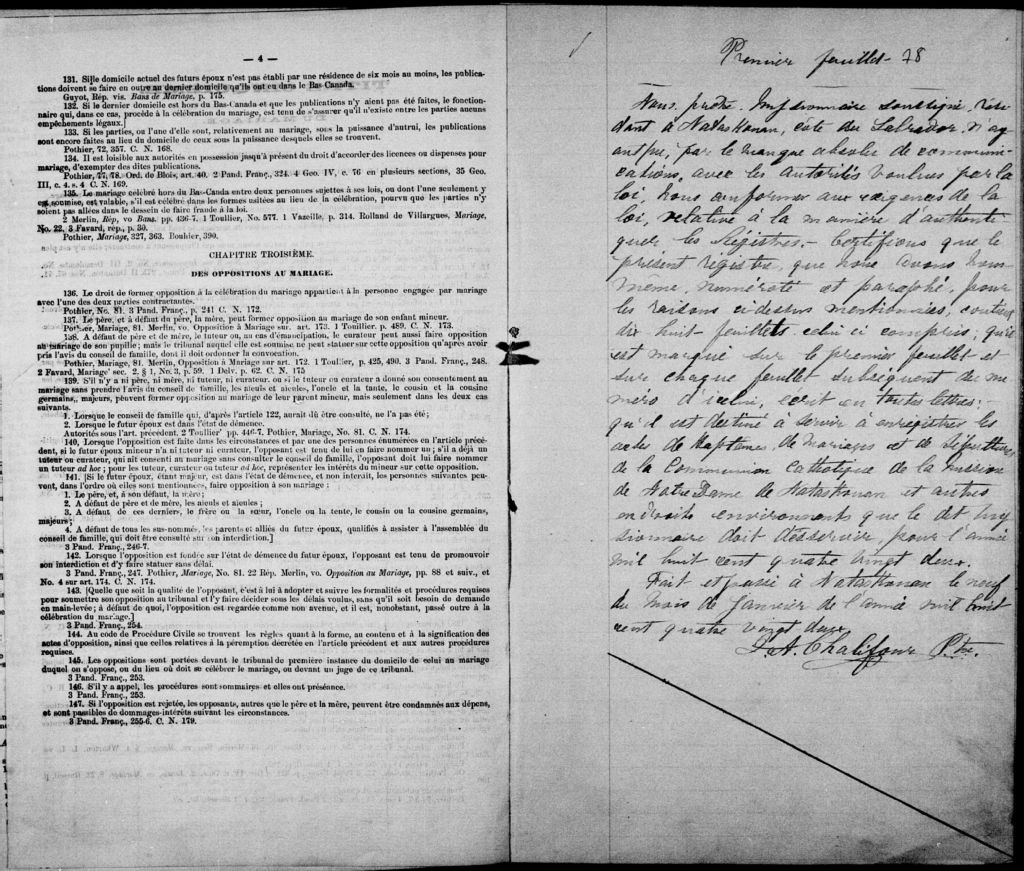 — 4 —
131. Si le domicile actuel des futurs époux n'est pas établi par une résidence de six mois au moins, les publica-
tions doivent se faire en outre au dernier domicile qu'ils ont eu dans le Bas-Canada.
Guyot, Rép. vis. Bans de Mariage, p. 175.
132. Si le dernier domicile est hors du Bas-Canada et que les publications n'y aient pas été faites, le fonction-
naire qui, dans ce cas, procède à la célébration du mariage, est tenu de s'assurer qu'il n'existe entre les parties aucuns
empêchements légaux.
133. Si les parties, ou l'une d'elle sont, relativement au mariage, sous la puissance d'autrui, les publications
sont encore faites au lieu du domicile de ceux sous la puissance desquels elles se trouvent.
Pothier, 72, 357. C. N. 168.
134. Il est loisible aux autorités en possession jusqu'à présent du droit d'accorder des licences ou dispenses pour
mariage, d'exempter des dites publications.
Pothier, 77, 78. Ord. de Blois, art. 40. 2 Pand. Franç., 324. 4 Geo. IV, c. 76 en plusieurs sections, 35 Geo.
III, c. 4. s. 4 C. N. 169.
135. Le mariage célébré hors du Bas-Canda entre deux personnes sujettes à ses lois, ou dont l'une seulement y
est soumise, est valable, s'il est célébré dans les formes usitées au lieu de la célébration, pourvu que les parties n'y
soient pas allées dans le dessein de faire fraude à la loi.
2 Merlin, Rép, vo Bans. pp. 436-7. 1 Toullier, No. 577. 1 Vazeille, p. 314. Rolland de Villargues, Mariage,
No. 22, 3 Favard, rép., p. 30.
Pothier, Mariage, 327, 363. Bouhier, 390.
CHAPITRE TROISIÈME.
DES OPPOSITIONS AU MARIAGE.
136. Le droit de former opposition à la célébration du mariage appartient à la personne engagée par mariage
avec l'une des deux parties contractantes.
Pothier, No. 81. 3 Pand. Franç., p. 241 C. N. 172.
137. Le père, et à défaut du père, la mère, peut former opposition au mariage de son enfant mineur.
Pothier, Mariage, 81. Merlin, vo. Opposition à Mariage sur. art. 173. 1 Toullier. p. 489. C. N. 173.
138. A défaut de père et de mère, le tuteur ou, au cas d'émancipation, le curateur peut aussi faire opposition
au mariage de son pupille; mais le tribunal auquel elle est soumise ne peut statuer sur cette opposition qu'après avoir
pris l'avis du conseil de famille, dont il doit ordonner la convocation.
Pothier, Mariage, 81. Merlin, Opposition à Mariage sur art. 172. 1 Toullier, p. 425, 490. 3 Pand. Franç., 248.
2 Favard, Mariage' sec. 2. § 1, No. 3, p. 59. 1 Delv. p. 62. C. N. 175
139. S'il n'y a ni père, ni mère, ni tuteur, ni curateur, ou si le tuteur ou curateur a donné son consentement au
mariage sans prendre l'avis du conseil de famille, les aïeuls et aïeules, l'oncle et la tante, le cousin et la cousine
germains, majeurs, peuvent former opposition au mariage de leur parent mineur, mais seulement dans les deux cas
suivants.
1. Lorsque le conseil de famille qui, d'après l'article 122, aurait dû être consulté, ne l'a pas été;
2. Lorsque le futur époux est dans l'état de démence.
Autorités sous l'art. précédent. 2 Toullier' pp. 446-7. Pothier, Mariage, No. 81. C. N. 174.
140. Lorsque l'opposition est faite dans les circonstances et par une des personnes énumérées en l'article précé-
dent, si le futur époux mineur n'a ni tuteur ni curateur, l'opposant est tenu de lui en faire nommer un; s'il a déjà un
tuteur ou curateur, qui ait consenti au mariage sans consulter le conseil de famille, l'opposant doit lui faire nommer
un tuteur ad hoc; pour les tuteur, curateur ou tuteur ad hoc, représenter les intérêts du mineur sur cette opposition.
141. [Si le futur époux, étant majeur, est dans l'état de démence, et non interdit, les personnes suivantes peu-
vent, dans l'ordre où elles sont mentionnées, faire opposition à son mariage:
1. Le père, et, à son défaut, la mère;
2. A défaut de père et de mère, les aïeuls et aïeules;
3. A défaut de ces derniers, le frère ou la sœur, l'oncle ou la tente, le cousin ou la cousine germains,
majeurs;
4. A défaut de tous les sus-nommés, les parents et alliés du futur époux, qualifiés à assister à l'assemblée du
conseil de famille, qui doit être consulté sur son interdiction.]
3 Pand. Franç., 246-7.
142. Lorsque l'opposition est fondée sur l'état de démence du futur époux, l'opposant est tenu de promouvoir
son interdiction et d'y faire statuer sans délai.
3 Pand. Franç., 247. Pothier, Mariage, No. 81. 22 Rép. Merlin, vo. Opposition au Mariage, pp. 88 et suiv., et
No. 4 sur art. 174. C. N. 174.
143. [Quelle que soit la qualité de l'opposant, c'est à lui à adopter et suivre les formalités et procédures requises
pour soumettre son opposition au tribunal et l'y faire décider sous les délais voulus, sans qu'il soit besoin de demande
en main-levée; à défaut de quoi, l'opposition est regardée comme non avenue, et il est, nonobstant, passé outre à la
célébration du mariage.]
3 Pand. Franç., 254.
144. Au code de Procédure Civile se trouvent les règles quant à la forme, au contenu et à la signification des
actes d'opposition, ainsi que celles relatives à la péremption decrétée en l'article précédent et aux autres procédures
requises.
145. Les oppositions sont portées devant le tribunal de première instance du domicile de celui au mariage
duquel on s'oppose, ou du lieu où doit se célébrer le mariage, ou devant un juge de ce tribunal.
3 Pand. Franç., 253.
146. S'il y a appel, les procédures sont sommaires et elles ont présénnce.
3 Pand. Franç., 253.
147. Si l'opposition est rejetée, les opposants, autres que le père et la mère, peuvent être condamnés aux dépens,
et sont passibles de dommages-intérêts suivant les circonstances.
3 Pand. Franç., 255-6. C. N. 179.
Premier feuillet 78
Nous, prêtre Missionnaire soussigné, rési
dant à Nataskouan, côte du Labrador, n'ay
ant pu, par le manque absolu de communi-
cations, avec les autorités voulues par la
loi, nous conformer aux exigences de la
loi, relative à la manière d'authenti
quer les Régistres.- Certifions que le
présent régistre, que nous avons nous
même, numéroté et paraphé, pour
les raisons ci-dessus mentionnées, contient
dix huit feuillets celui ci compris, qu'il
est marqué sur le premier feuillet et
sur chaque feuillet subséquent du nu
méro d'icelui, écrit en toutes lettres;
qu'il est destiné à servir à enregistrer les
actes de Baptêmes de Mariages et de Sépultures
de la Communion Catholique de la mission
de Notre Dame de Nataskouan et autres
endroits environnants que le dit mis
sionnaire doit desservir, pour l'année
mil huit cent quatre vingt deux.
Fait et passé à Nataskouan le neuf
du mois de Janvier de l'année mil huit
cent quatre vingt deux
J. A. Chalifour Ptre.